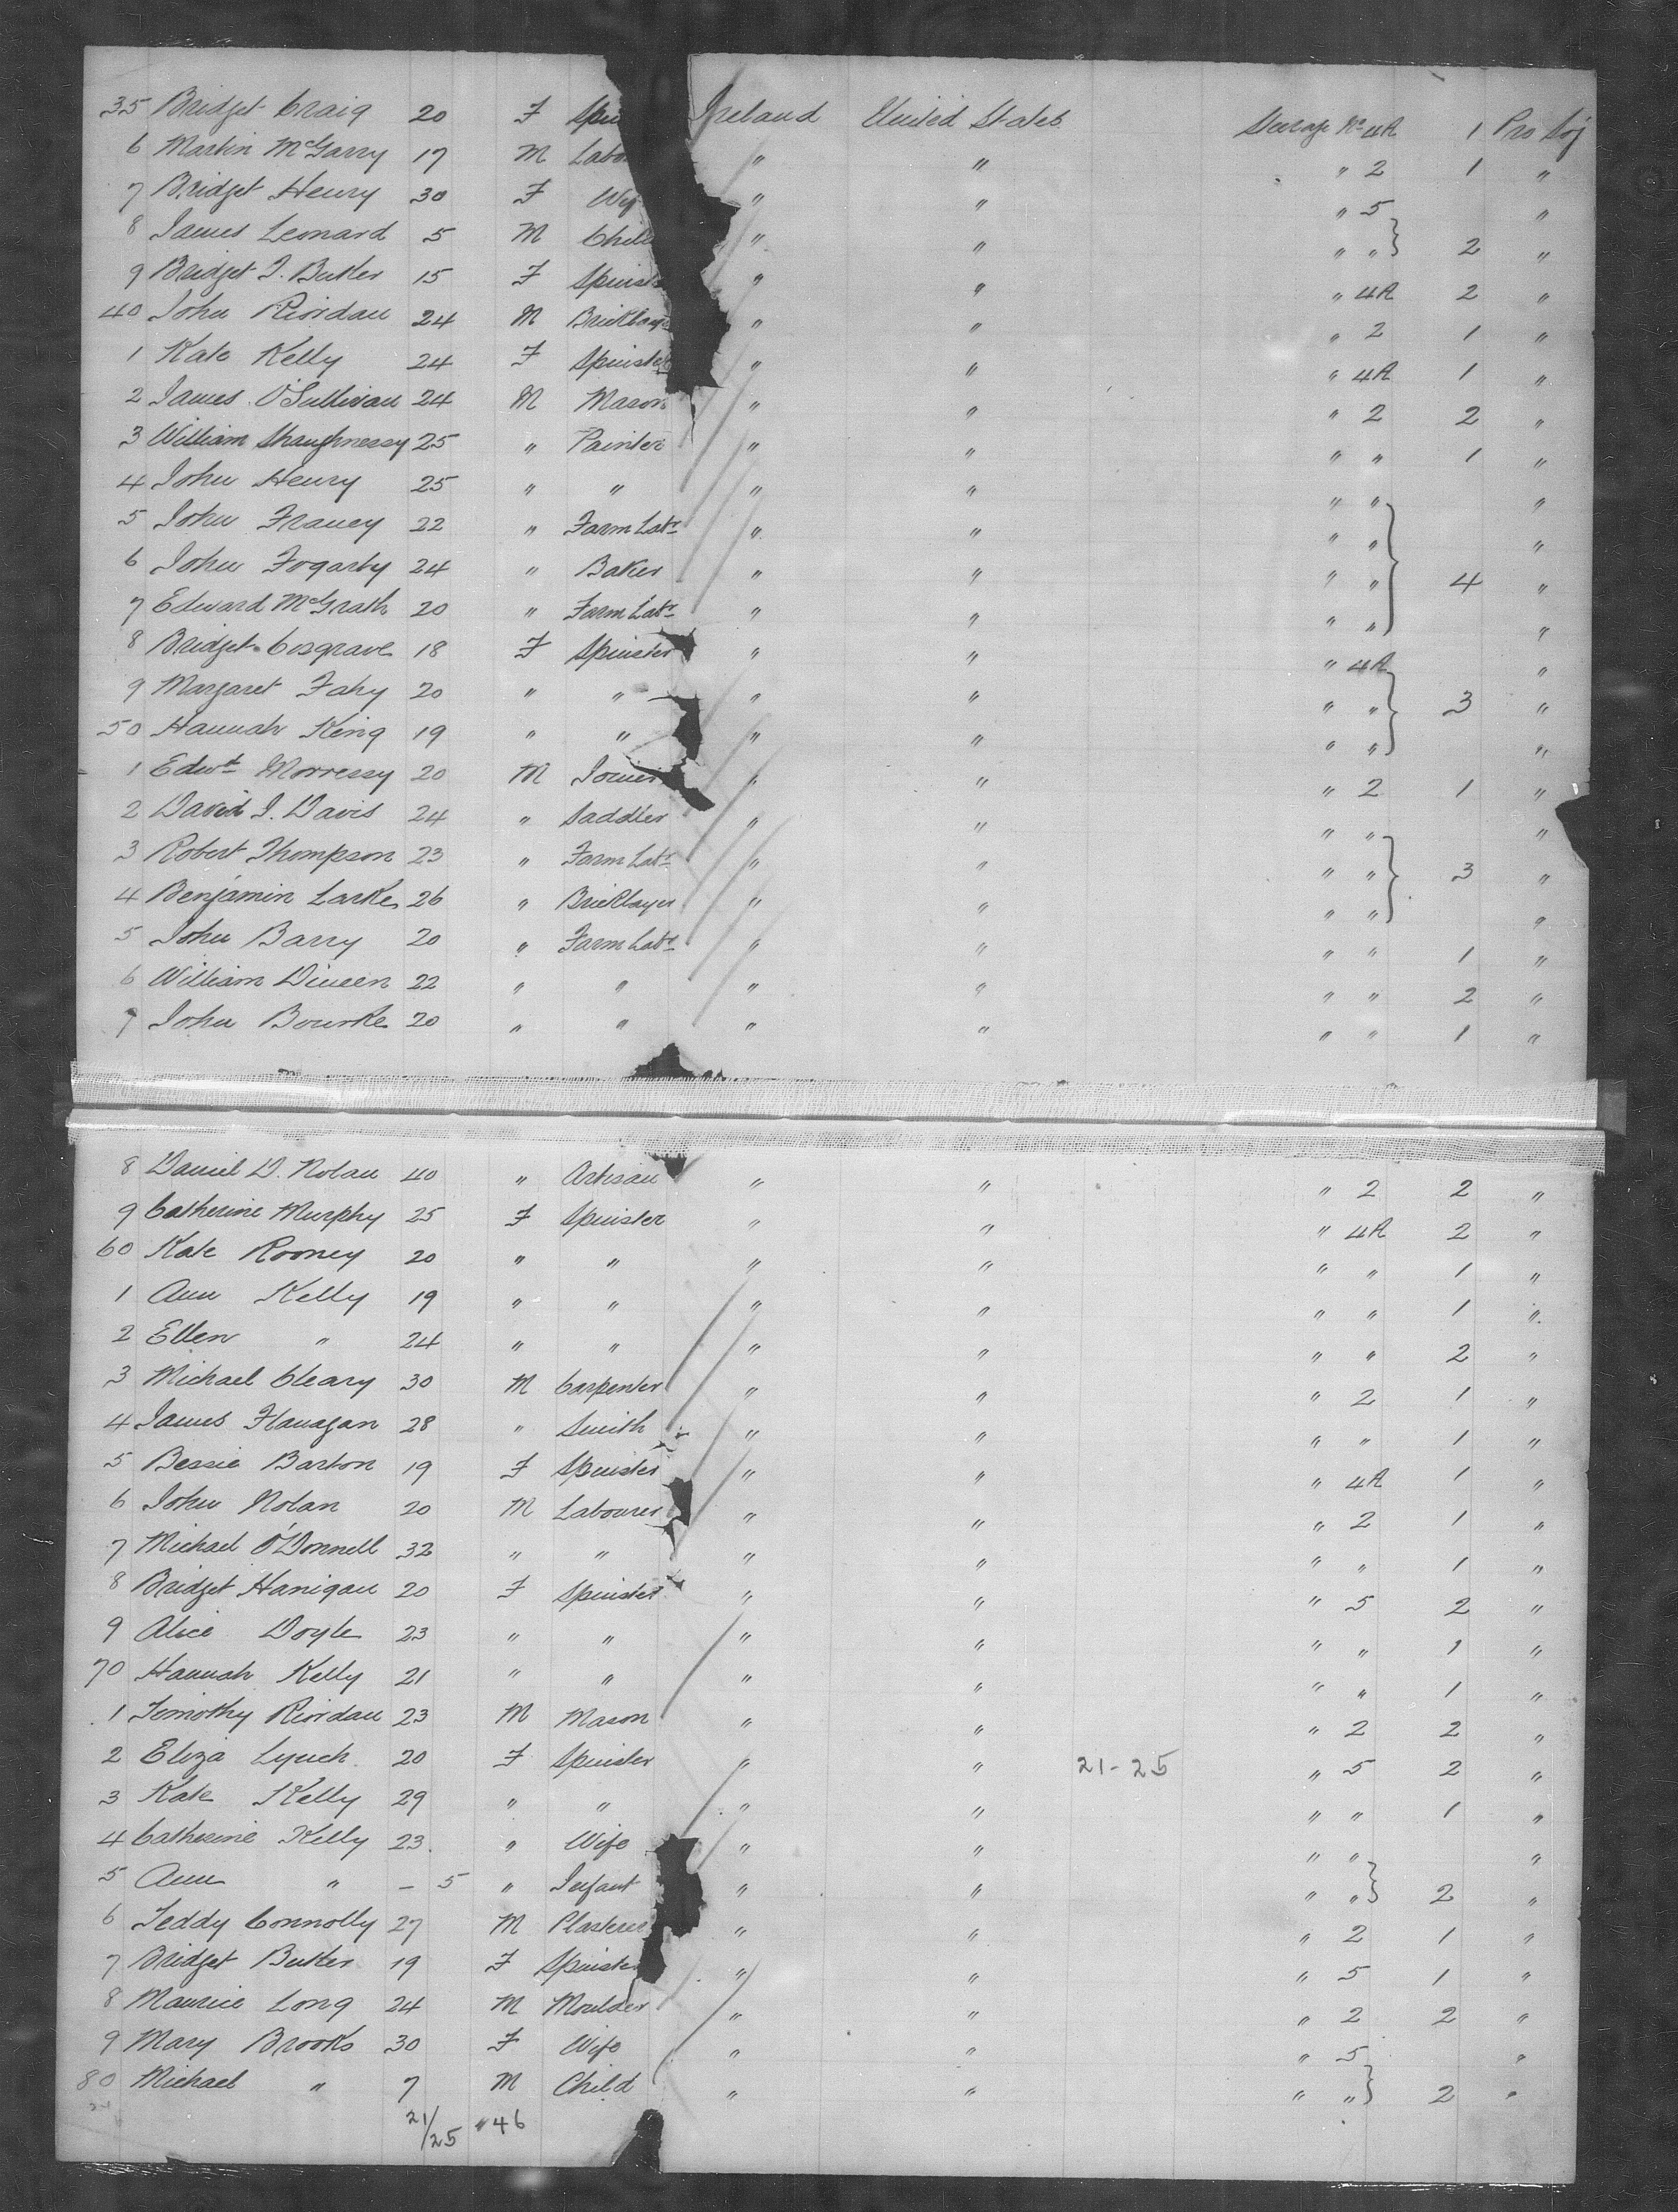 35 Bridget Craig 20 F Spin Ireland United States Steerage No 4A 1 Pro Soj
6 Martin McGarry 17 M Labo " " " 2 1 "
7 Bridget Henry 30 F Wif " " " 5 "
8 James Leonard 5 M Chil " " " " 2 "
9 Bridget J. Butler 15 F Spinst " " " 4A 2 "
40 John Riordan 24 M Bricklaye " " " 2 1 "
1 Kate Kelly 24 F Spinster " " " 4A 1 "
2 James O'Sullivan 24 M Mason " " " 2 2 "
3 William Shaughnessy 25 " Painter " " " " 1 "
4 John Henry 25 " " " " " " "
5 John Francy 22 " Farm Labr " " " " "
6 John Fogarty 24 " Baker " " " " 4 "
7 Edward McGrath 20 " Farm Labr " " " " "
8 Bridget Cosgrave 18 F Spinster " " " 4A "
9 Margaret Fahy 20 " " " " " " 3 "
50 Hannah King 19 " " " " " " "
1 Edwd Morressy 20 M Joiner " " " 2 1 "
2 David J. Davis 24 " Saddler " " " " "
3 Robert Thompson 23 " Farm Labr " " " " 3 "
4 Benjamin Larke 26 " Bricklayer " " " " "
5 John Barry 20 " Farm Labr " " " " 1 "
6 William Dineen 22 " " " " " " 2 "
7 John Bourke 20 " " " " " " 1 "
8 Daniel D. Nolan 40 " Artisan " " " 2 2 "
9 Catherine Murphy 25 F Spinster " " " 4A 2 "
60 Kate Rooney 20 " " " " " " 1 "
1 Ann Kelly 19 " " " " " " 1 "
2 Ellen " 24 " " " " " " 2 "
3 Michael Cleary 30 M Carpenter " " " 2 1 "
4 James Flanagan 28 " Smith " " " " 1 "
5 Bessie Barton 19 F Spinster " " " 4A 1 "
6 John Nolan 20 M Labourer " " " 2 1 "
7 Michael O'Donnell 32 " " " " " " 1 "
8 Bridget Hanigan 20 F Spinster " " " 5 2 "
9 Alice Doyle 23 " " " " " " 1 "
70 Hannah Kelly 21 " " " " " " 1 "
1 Timothy Riordan 23 M Mason " " " 2 2 "
2 Eliza Lynch 20 F Spinster " " 21-25 " 5 2 "
3 Kate Kelly 29 " " " " " " 1 "
4 Catherine Kelly 23 " Wife " " " " "
5 Ann " - 5 " Infant " " " " 2 "
6 Teddy Connolly 27 M Plasterer " " " 2 1 "
7 Bridget Butler 19 F Spinste " " " 5 1 "
8 Maurice Long 24 M Moulder " " " 2 2 "
9 Mary Brooks 30 F Wife " " " 5 "
80 Michael " 7 M Child " " " " 2 "
21/25 "46